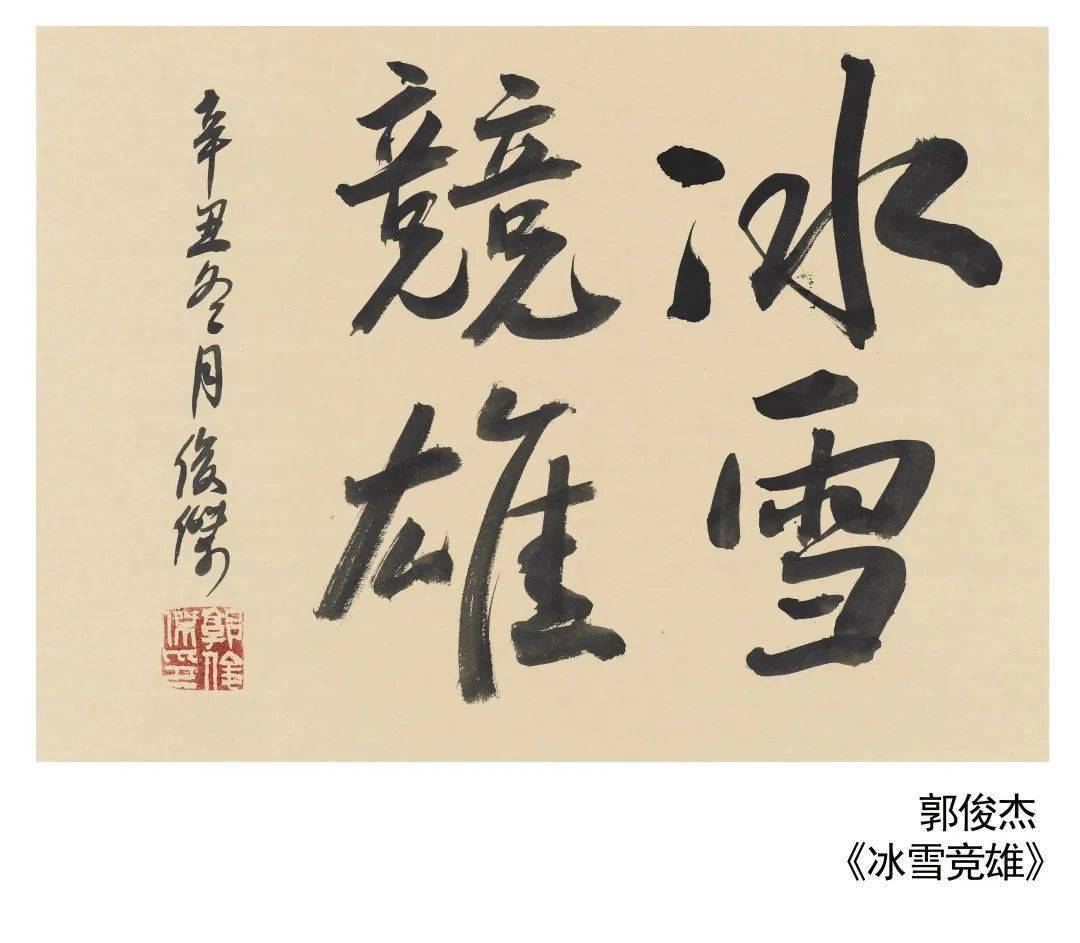 冰雪
競雄
辛丑冬月俊傑
郭俊傑印
郭俊杰
《冰雪竞雄》